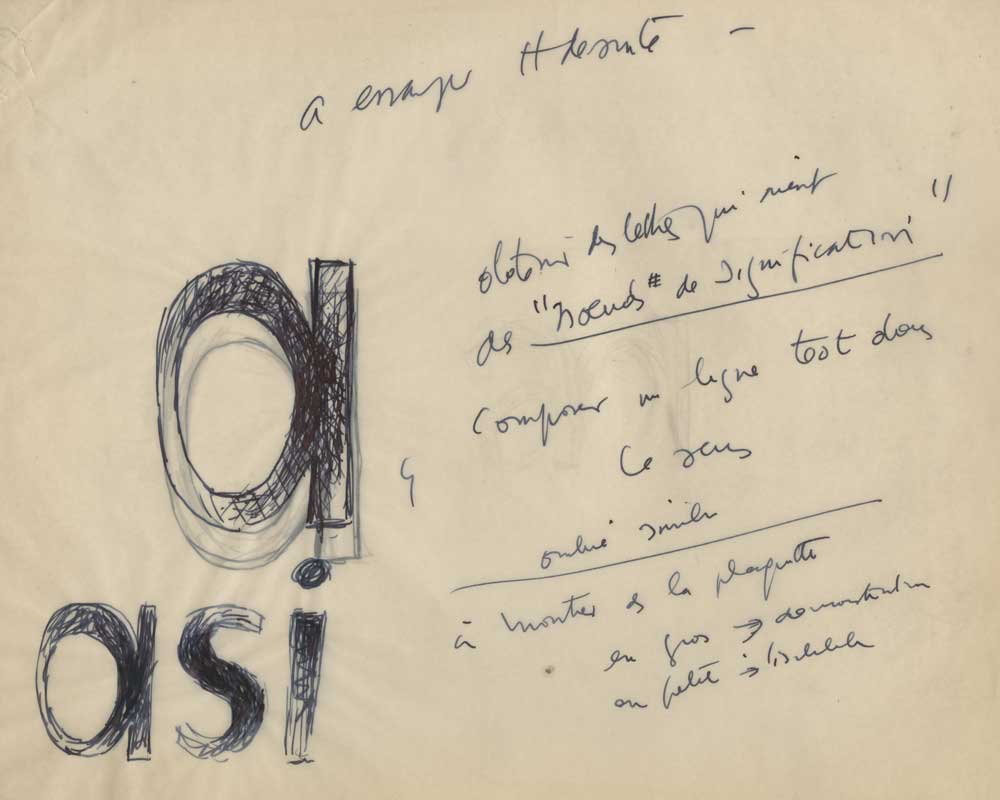 a essayer H densité -
obtenir des lettres qui soient
des "noeuds" de signification"
composer un ligne tout dans
ce sens
ombré simili
à montrer ds la plaquette
en gros → demonstration
en petit → lisibilité
a
asi